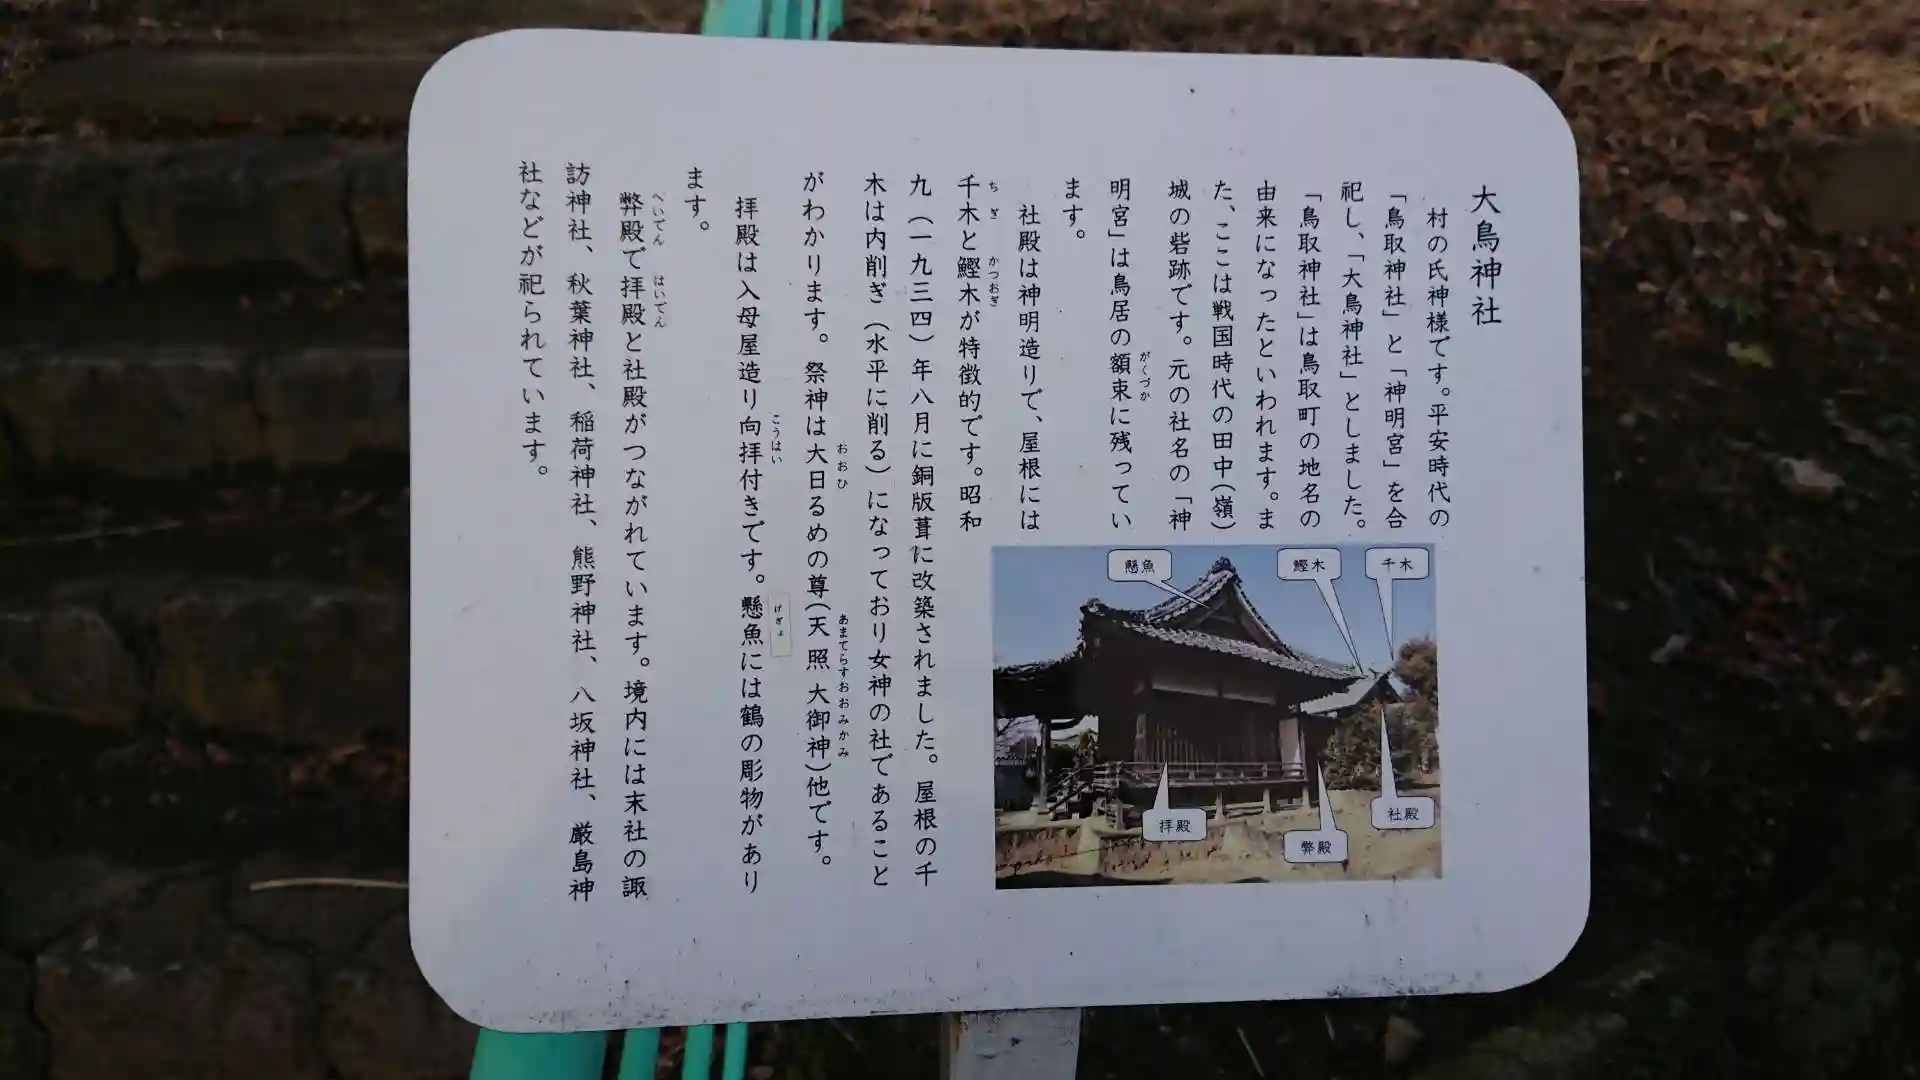 大鳥神社
村の氏神様です。平安時代の
「鳥取神社」と「神明宮」を合
祀し、「大鳥神社」としました。
「鳥取神社」は鳥取町の地名の
由来になったといわれます。ま
た、ここは戦国時代の田中(嶺)
城の砦跡です。元の社名の「神
明宮」は鳥居の額束に残ってい
がくづか
ます。
社殿は神明造りで、屋根には
千木と鰹木が特徴的です。昭和
ちぎ かつおぎ
九(一九三四)年八月に銅版葺に改築されました。屋根の千
木は内削ぎ(水平に削る)になっており女神の社であること
がわかります。祭神は大日るめの尊(天照大御神)他です。
おおひ あまてらすおおみかみ
拝殿は入母屋造り向拝付きです。懸魚には鶴の彫物があり
こうはい げぎょ
ます。
弊殿で拝殿と社殿がつながれています。境内には末社の諏
へいでん はいでん
訪神社、秋葉神社、稲荷神社、熊野神社、八坂神社、厳島神
社などが祀られています。
懸魚
鰹木
千木
拝殿
弊殿
社殿